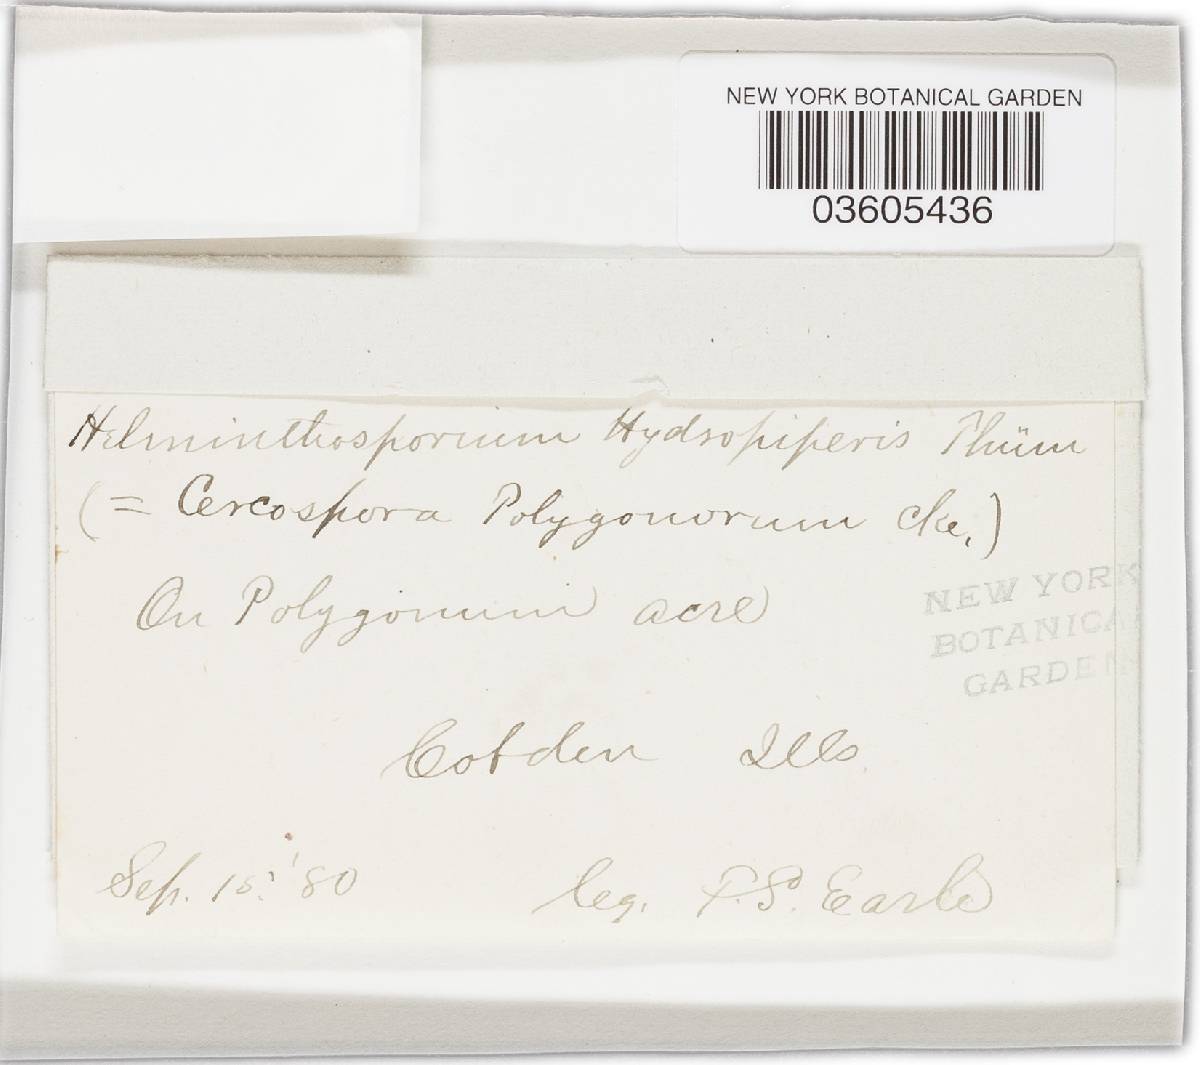 NEW YORK BOTANICAL GARDEN
03605436
Helminthosporium Hydropiperis Thüm
(= Cercospora Polygonorum Cke.)
On Polygonum acre
NEW YORK
BOTANICAL
GARDEN
Cobden Ills
Sep. 15. '80 leg. F.S. Earle